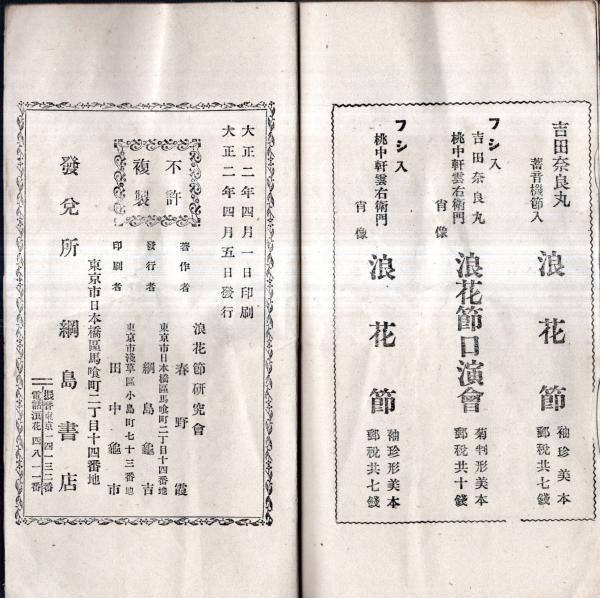 吉田奈良丸
蓄音機節入
浪花節
袖珍美本
郵税共七錢
フシ入
吉田奈良丸
桃中軒雲右衛門
肖像
浪花節口演會
菊判形美本
郵税共十錢
フシ入
桃中軒雲右衛門
肖像
浪花節
袖珍形美本
郵税共七錢
大正二年四月一日印刷
大正二年四月五日發行
不許
複製
浪花節研究會
著作者 春野霞
東京市日本橋區馬喰町二丁目十四番地
發行者 綱島龜吉
東京市淺草區小島町七十三番地
印刷者 田中龜市
東京市日本橋區馬喰町二丁目十四番地
發兌所 綱島書店
振替東京一四一三二番
電話浪花四八一一番